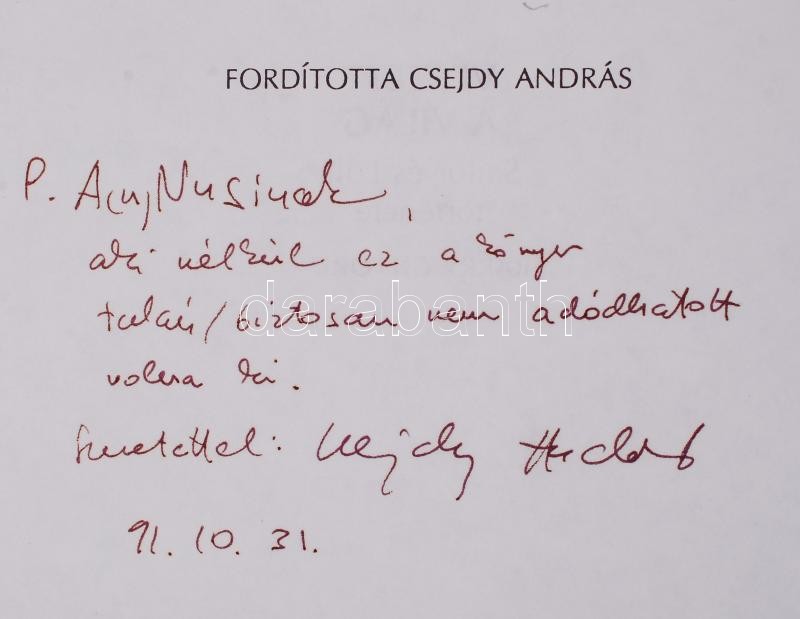 FORDÍTOTTA CSEJDY ANDRÁS
P. Nusinak,
aki nélkül ez a könyv
talán/biztosan nem adódhatott
darabanth
volna ki.
Szeretettel: Csejdy András
91. 10. 31.